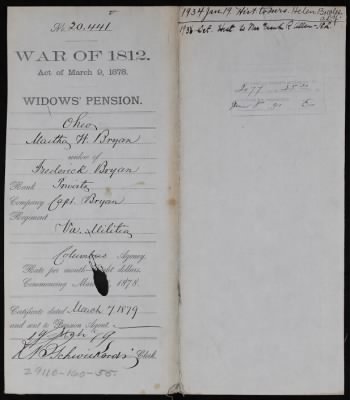 No. 20.441
WAR OF 1812.
Act of March 9, 1878.
WIDOWS' PENSION.
Ohio
Martha H. Bryan
widow of
Frederick Bryan
Rank Private
Company Capt. Bryan
Regiment
Va. Militia
Columbus Agency.
Rate per month, eight dollars.
Commencing March 1878.
Certificate dated March 7 1879
and sent to Pension Agent
Clerk.
29110-160-55
1934 Jan 19 Hist to Mrs. Helen
1936 Oct. Hist to Mrs Frank R.